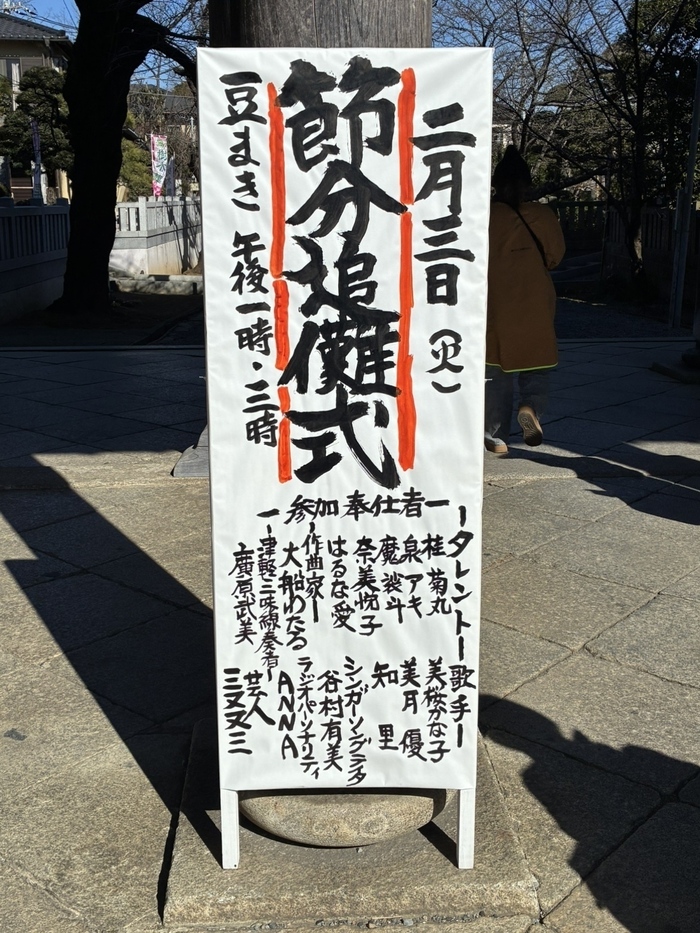 二月三日（火）
節分追儺式
豆まき 午後一時・三時
参加奉仕者
ータレントー
桂 菊丸
泉 アキ
魔裟斗
奈美悦子
はるな愛
ー作曲家ー
大船わたる
ー津軽三味線奏者ー
廣原武美
歌手ー
美桜かな子
美月 優
知里
シンガーソングライター
谷村有美
ラジオパーソナリティ
ANNA
芸人
三又又三